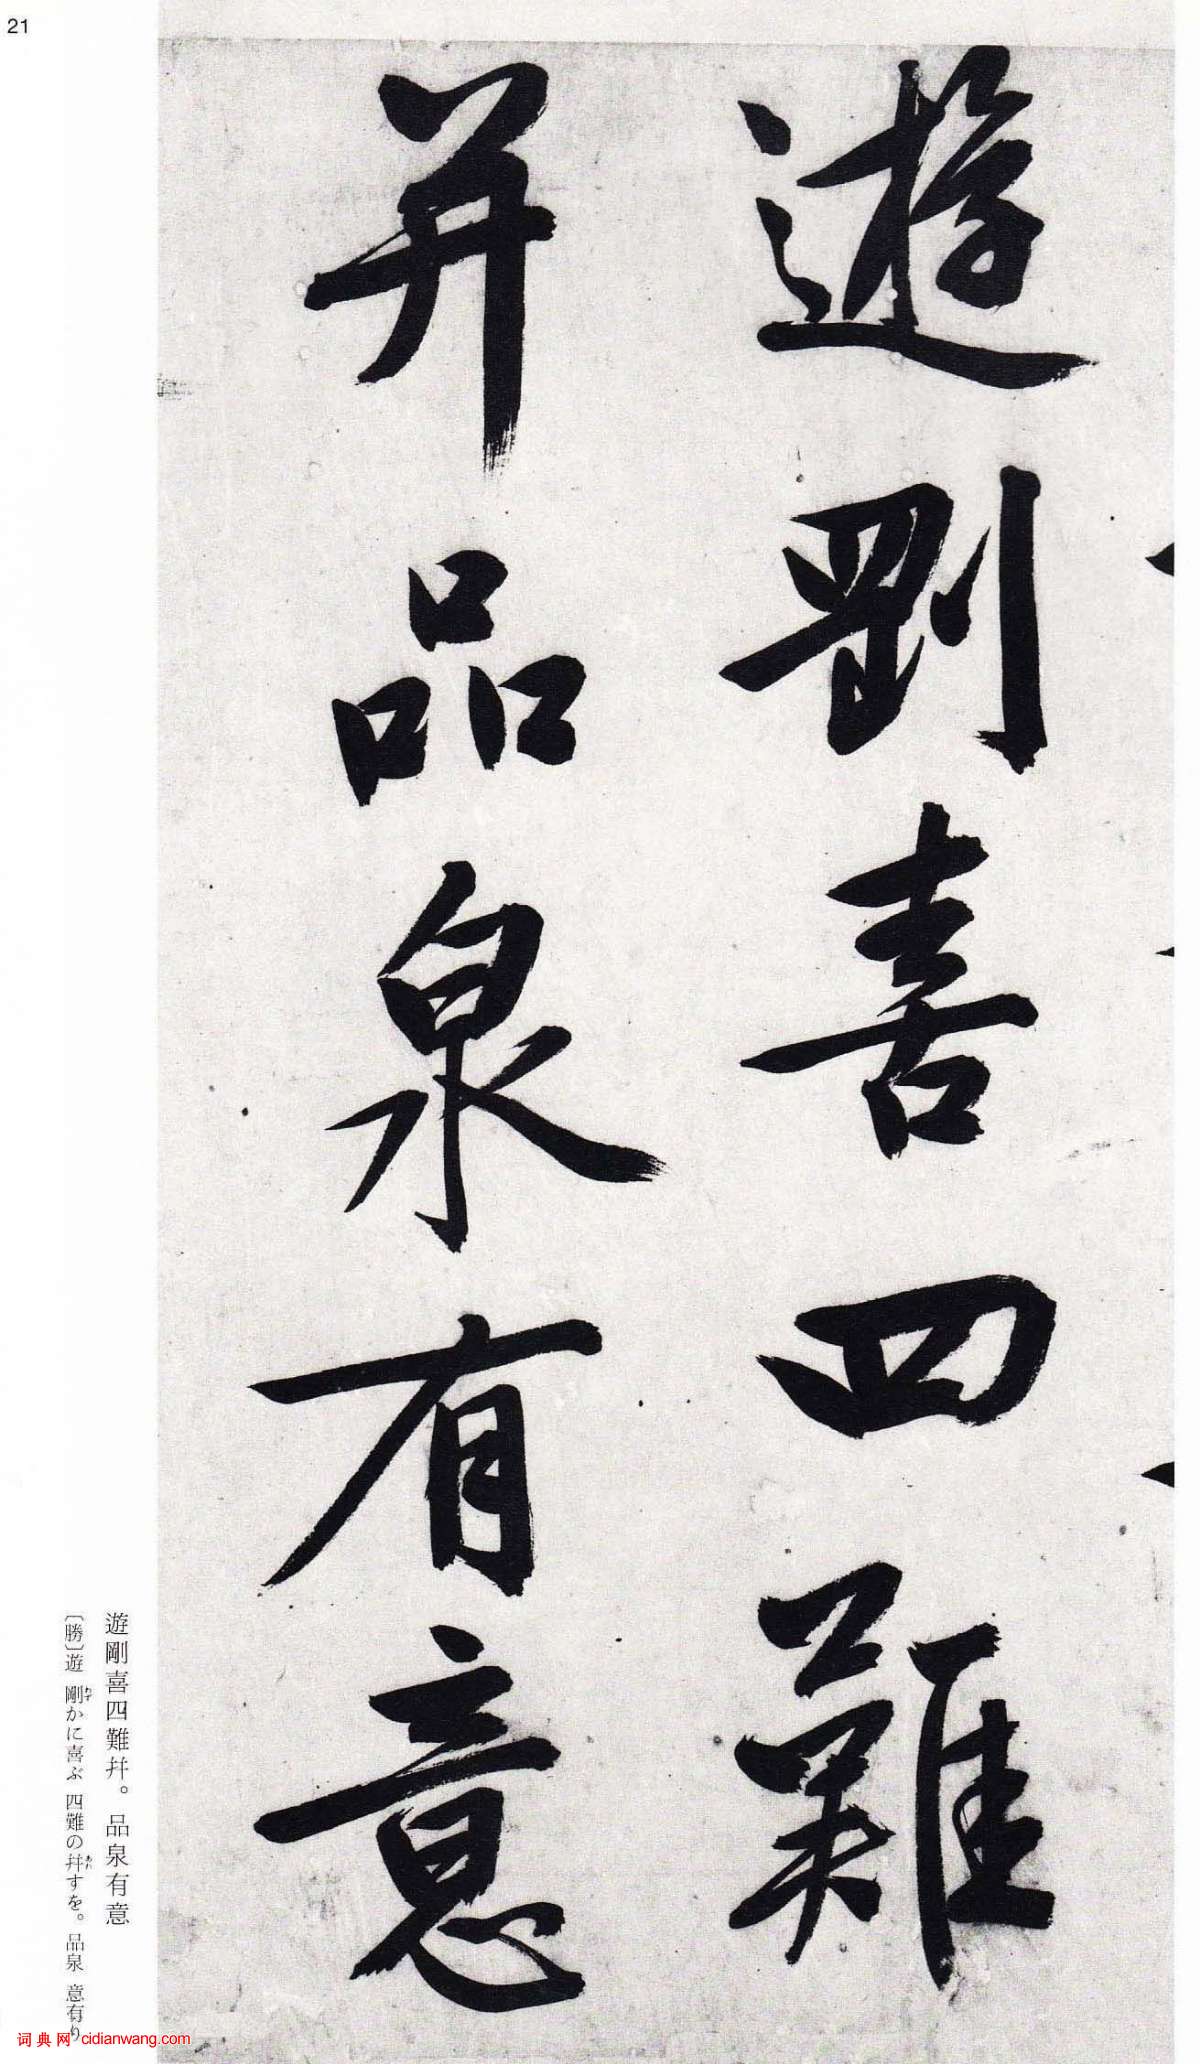 21
遊剛喜四難
并品泉有意
遊剛喜四難幷。品泉有意
〔勝〕遊 剛かに喜ぶ 四難の幷すを。品泉 意有り
わず
あわ
词典网 cidianwang.com